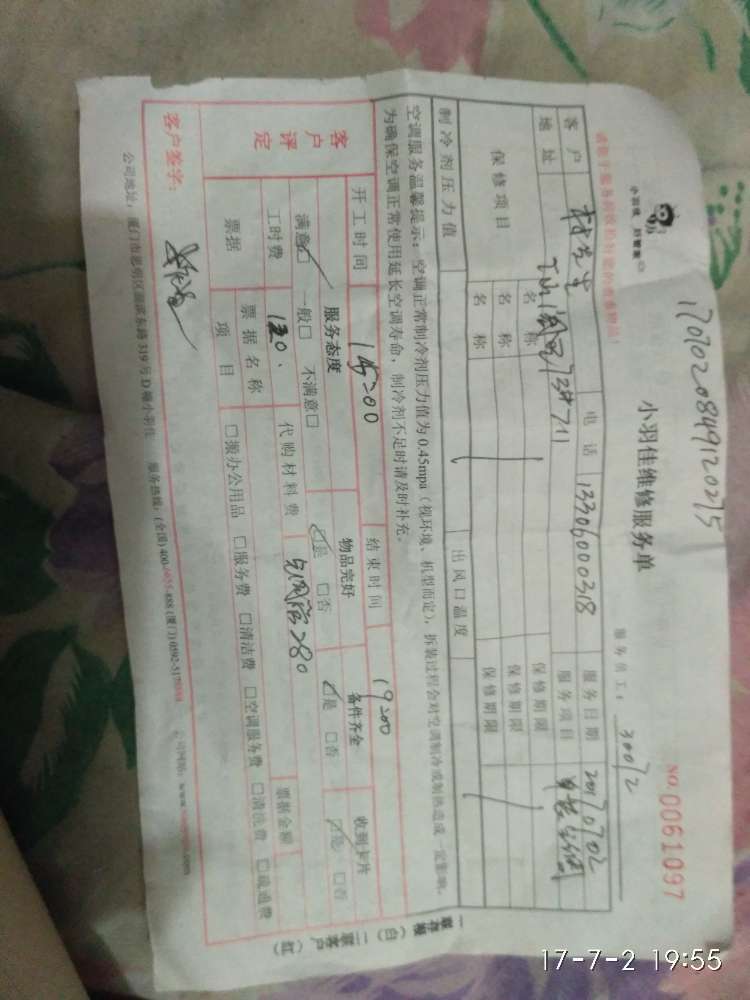 1707020849120215
小羽佳维修服务单
NO.0061097
服务员工: 30072
客户 林先生 电话 13306000318 服务日期 20170702
地址 服务项目
保修项目 名称 保修期限
名称 保修期限
名称 保修期限
制冷剂压力值 出风口温度
空调服务温馨提示:空调正常制冷剂压力值为0.45mpa(视环境、机型而定),拆装过程会对空调制冷或制热造成一定影响,
为确保空调正常使用延长空调寿命,制冷剂不足时请及时补充。
开工时间 结束时间 19:00
客户评定 服务态度 物品完好 备件齐全 收到卡片
满意☑ 一般□ 不满意□ ☑是 □否 ☑是 □否 ☑是 □否
工时费 120. 代购材料费 280
票据 票据名称 票据金额
项目 □搬办公用品 □服务费 □清洁费 □空调服务费 □清洗费 □疏通费
客户签字:
公司地址:厦门市思明区 东路319号D 小羽佳 服务热线:(全国)400 公司网址:www.
一联存根(白)二联客户(红)
17-7-2 19:55